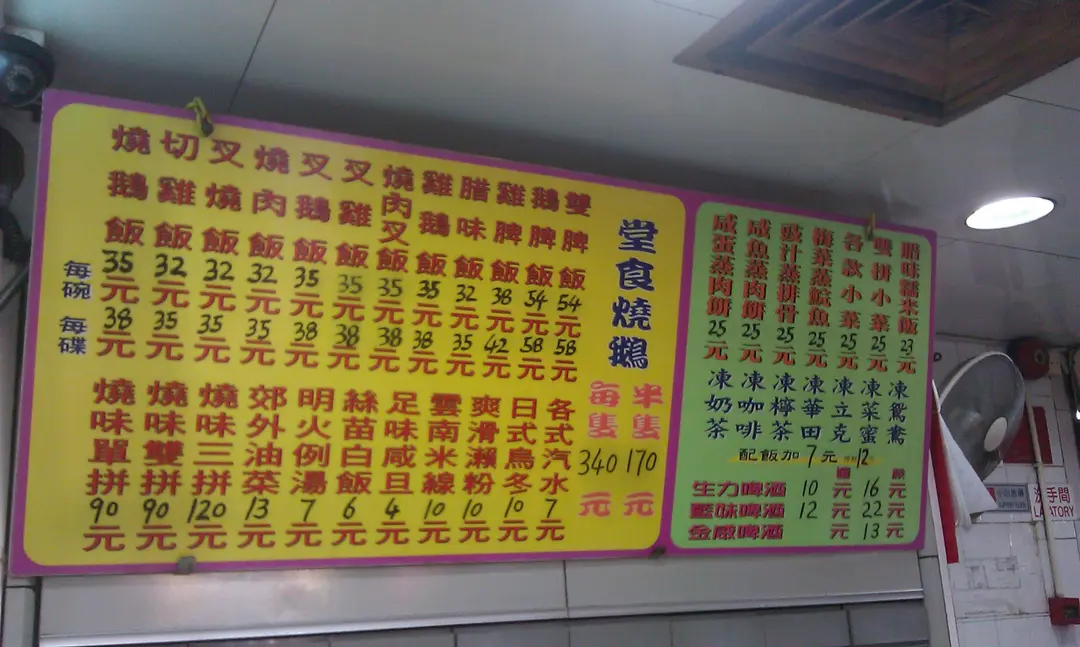 每碗
每碟
燒鵝飯35元38元
切雞飯32元35元
叉燒飯32元35元
燒肉飯32元35元
叉鵝飯35元38元
叉雞飯35元38元
燒肉叉飯35元38元
雞鵝飯35元38元
腊味飯32元35元
雞脾飯38元42元
鵝脾飯54元58元
雙脾飯54元58元
燒味單拼90元
燒味雙拼90元
燒味三拼120元
郊外油菜13元
明火例湯7元
絲苗白飯6元
足味咸旦4元
雲南米線10元
爽滑瀨粉10元
日式烏冬10元
各式汽水7元
堂食燒鵝
每隻340元
半隻170元
咸蛋蒸肉餅25元
咸魚蒸肉餅25元
豉汁蒸排骨25元
梅菜蒸鯇魚25元
各款小菜25元
雙拼小菜25元
腊味糯米飯23元
凍奶茶
凍咖啡
凍檸茶
凍華田
凍立克
凍菜蜜
凍鴛鴦
配飯加7元 12
生力啤酒 10 元 16 元
藍味啤酒 12 元 22 元
金威啤酒 元 13 元
洗手間
LAVATORY